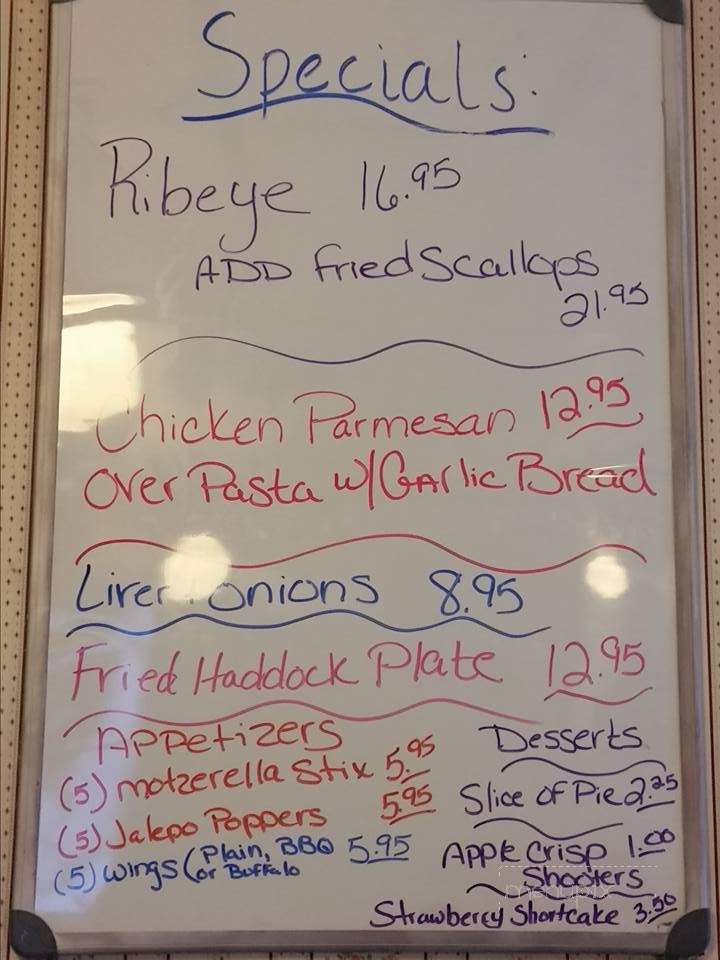 Specials:
Ribeye 16.95
ADD Fried Scallops
21.95
Chicken Parmesan 12.95
Over Pasta w/Garlic Bread
Liver + Onions 8.95
Fried Haddock Plate 12.95
Appetizers
(5) Motzerella Stix 5.95
(5) Jalepo Poppers 5.95
(5) Wings (Plain, BBQ 5.95
or Buffalo
Desserts
Slice of Pie 2.25
Apple Crisp 1.00
Shooters
Strawberry Shortcake 3.50
menupix